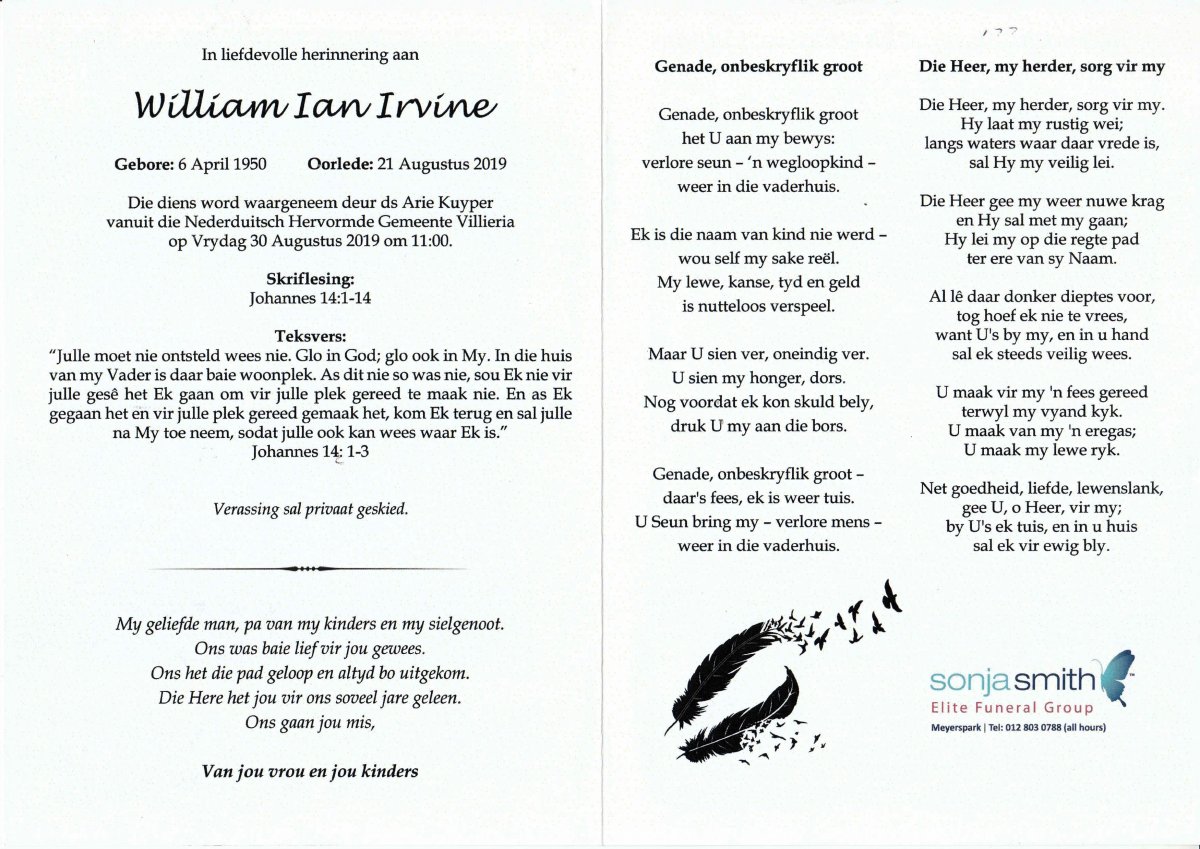 In liefdevolle herinnering aan
William Ian Irvine
Gebore: 6 April 1950 Oorlede: 21 Augustus 2019
Die diens word waargeneem deur ds Arie Kuyper
vanuit die Nederduitsch Hervormde Gemeente Villieria
op Vrydag 30 Augustus 2019 om 11:00.
Skriflesing:
Johannes 14:1-14
Teksvers:
“Julle moet nie ontsteld wees nie. Glo in God; glo ook in My. In die huis
van my Vader is daar baie woonplek. As dit nie so was nie, sou Ek nie vir
julle gesê het Ek gaan om vir julle plek gereed te maak nie. En as Ek
gegaan het en vir julle plek gereed gemaak het, kom Ek terug en sal julle
na My toe neem, sodat julle ook kan wees waar Ek is.”
Johannes 14: 1-3
Verassing sal privaat geskied.
My geliefde man, pa van my kinders en my sielgenoot.
Ons was baie lief vir jou gewees.
Ons het die pad geloop en altyd bo uitgekom.
Die Here het jou vir ons soveel jare geleen.
Ons gaan jou mis,
Van jou vrou en jou kinders
Genade, onbeskryflik groot
Genade, onbeskryflik groot
het U aan my bewys:
verlore seun – ‘n wegloopkind –
weer in die vaderhuis.
Ek is die naam van kind nie werd –
wou self my sake reël.
My lewe, kanse, tyd en geld
is nutteloos verspeel.
Maar U sien ver, oneindig ver.
U sien my honger, dors.
Nog voordat ek kon skuld bely,
druk U my aan die bors.
Genade, onbeskryflik groot –
daar's fees, ek is weer tuis.
U Seun bring my – verlore mens –
weer in die vaderhuis.
Die Heer, my herder, sorg vir my
Die Heer, my herder, sorg vir my.
Hy laat my rustig wei;
langs waters waar daar vrede is,
sal Hy my veilig lei.
Die Heer gee my weer nuwe krag
en Hy sal met my gaan;
Hy lei my op die regte pad
ter ere van sy Naam.
Al lê daar donker dieptes voor,
tog hoef ek nie te vrees,
want U's by my, en in u hand
sal ek steeds veilig wees.
U maak vir my 'n fees gereed
terwyl my vyand kyk.
U maak van my 'n eregas;
U maak my lewe ryk.
Net goedheid, liefde, lewenslank,
gee U, o Heer, vir my;
by U's ek tuis, en in u huis
sal ek vir ewig bly.
sonja smith™
Elite Funeral Group
Meyerspark | Tel: 012 803 0788 (all hours)